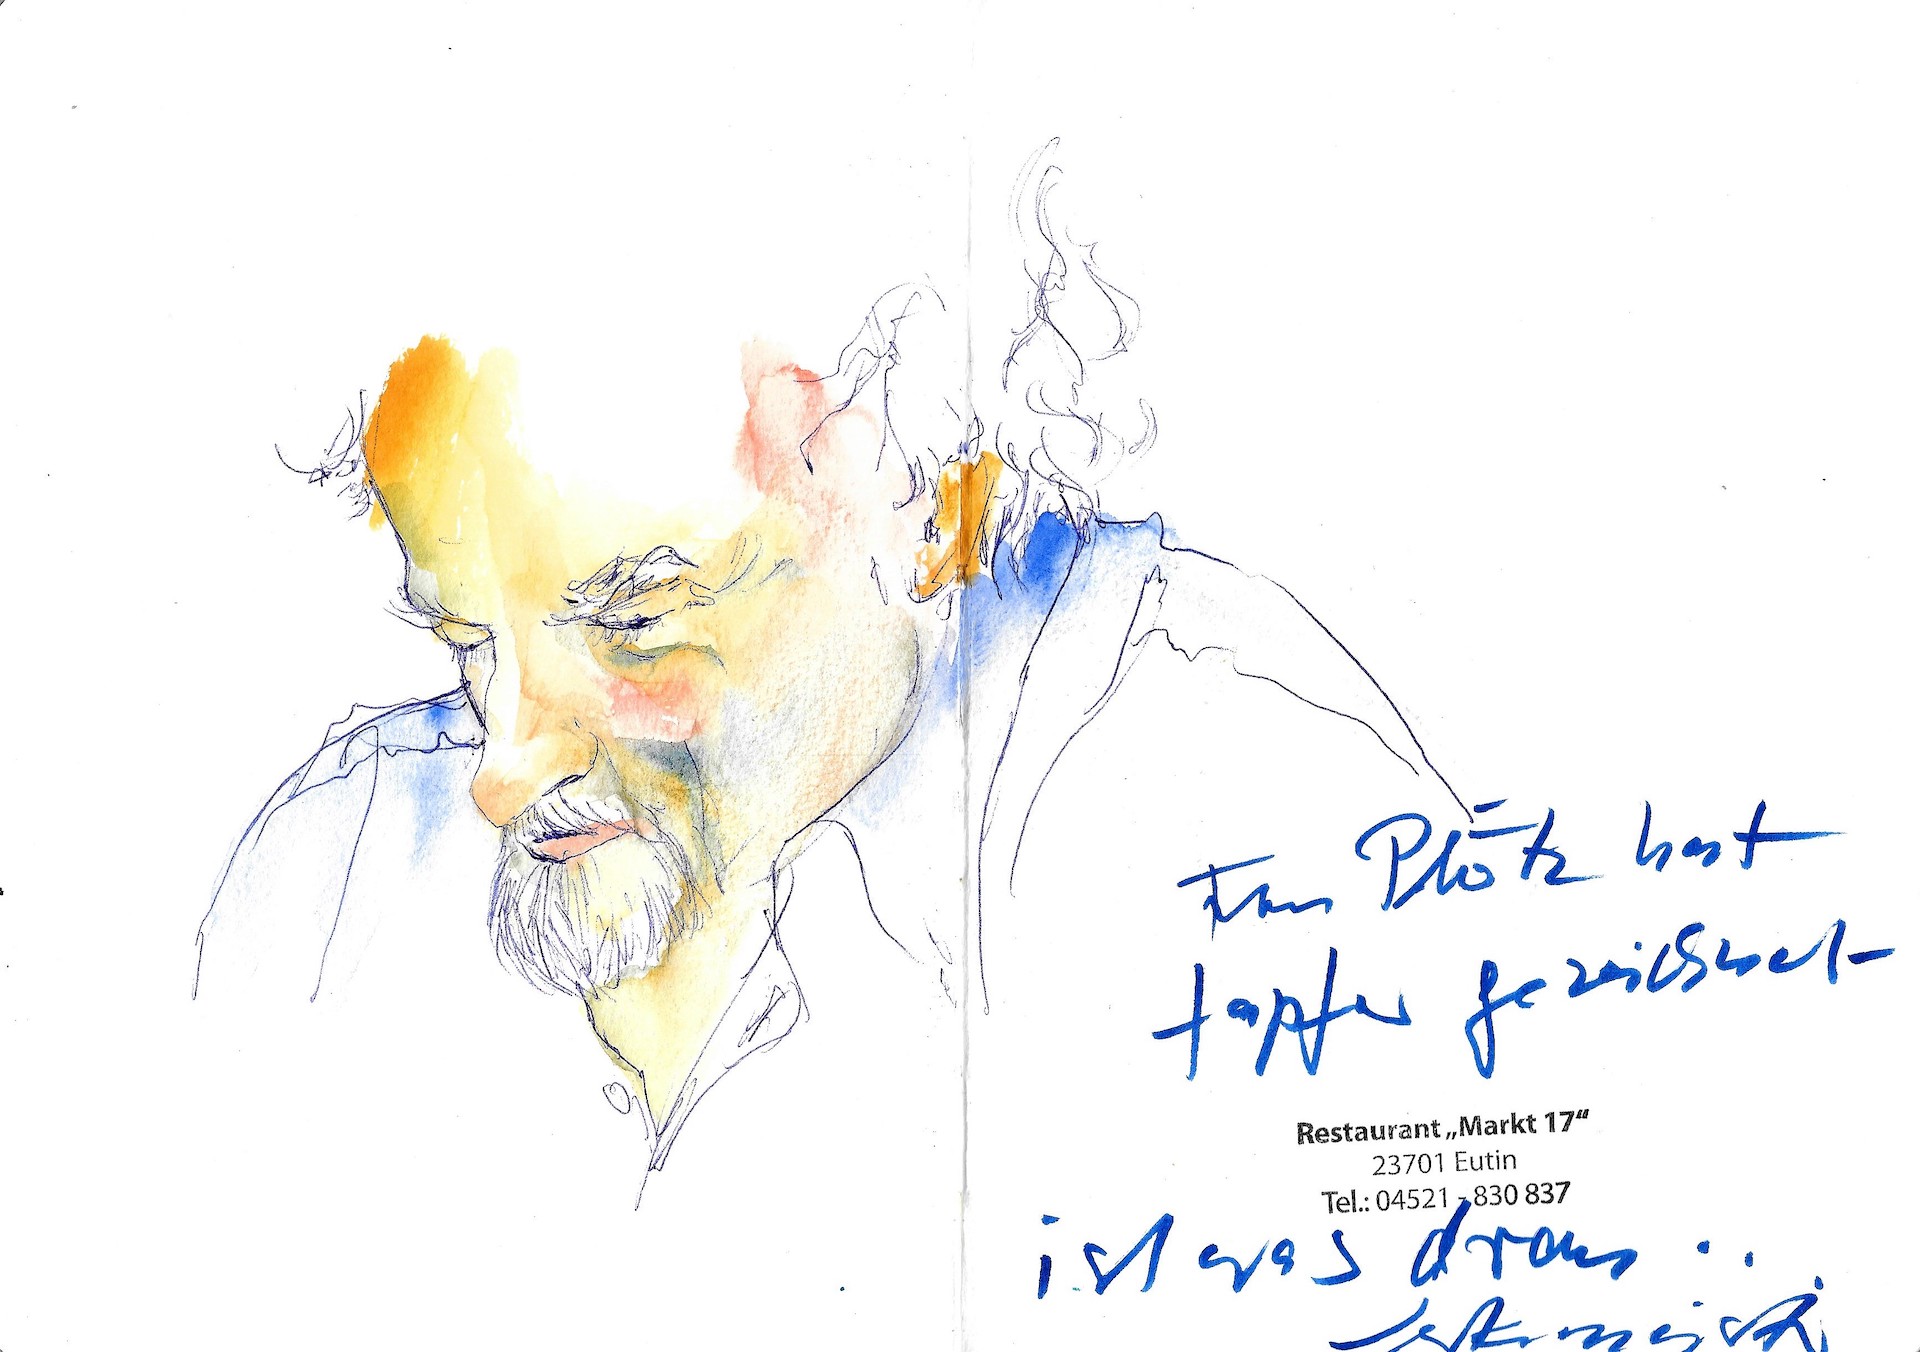 Frau Plötz hast
tapfer gezeichnet
Restaurant „Markt 17“
23701 Eutin
Tel.: 04521 - 830 837
ist was dran ...